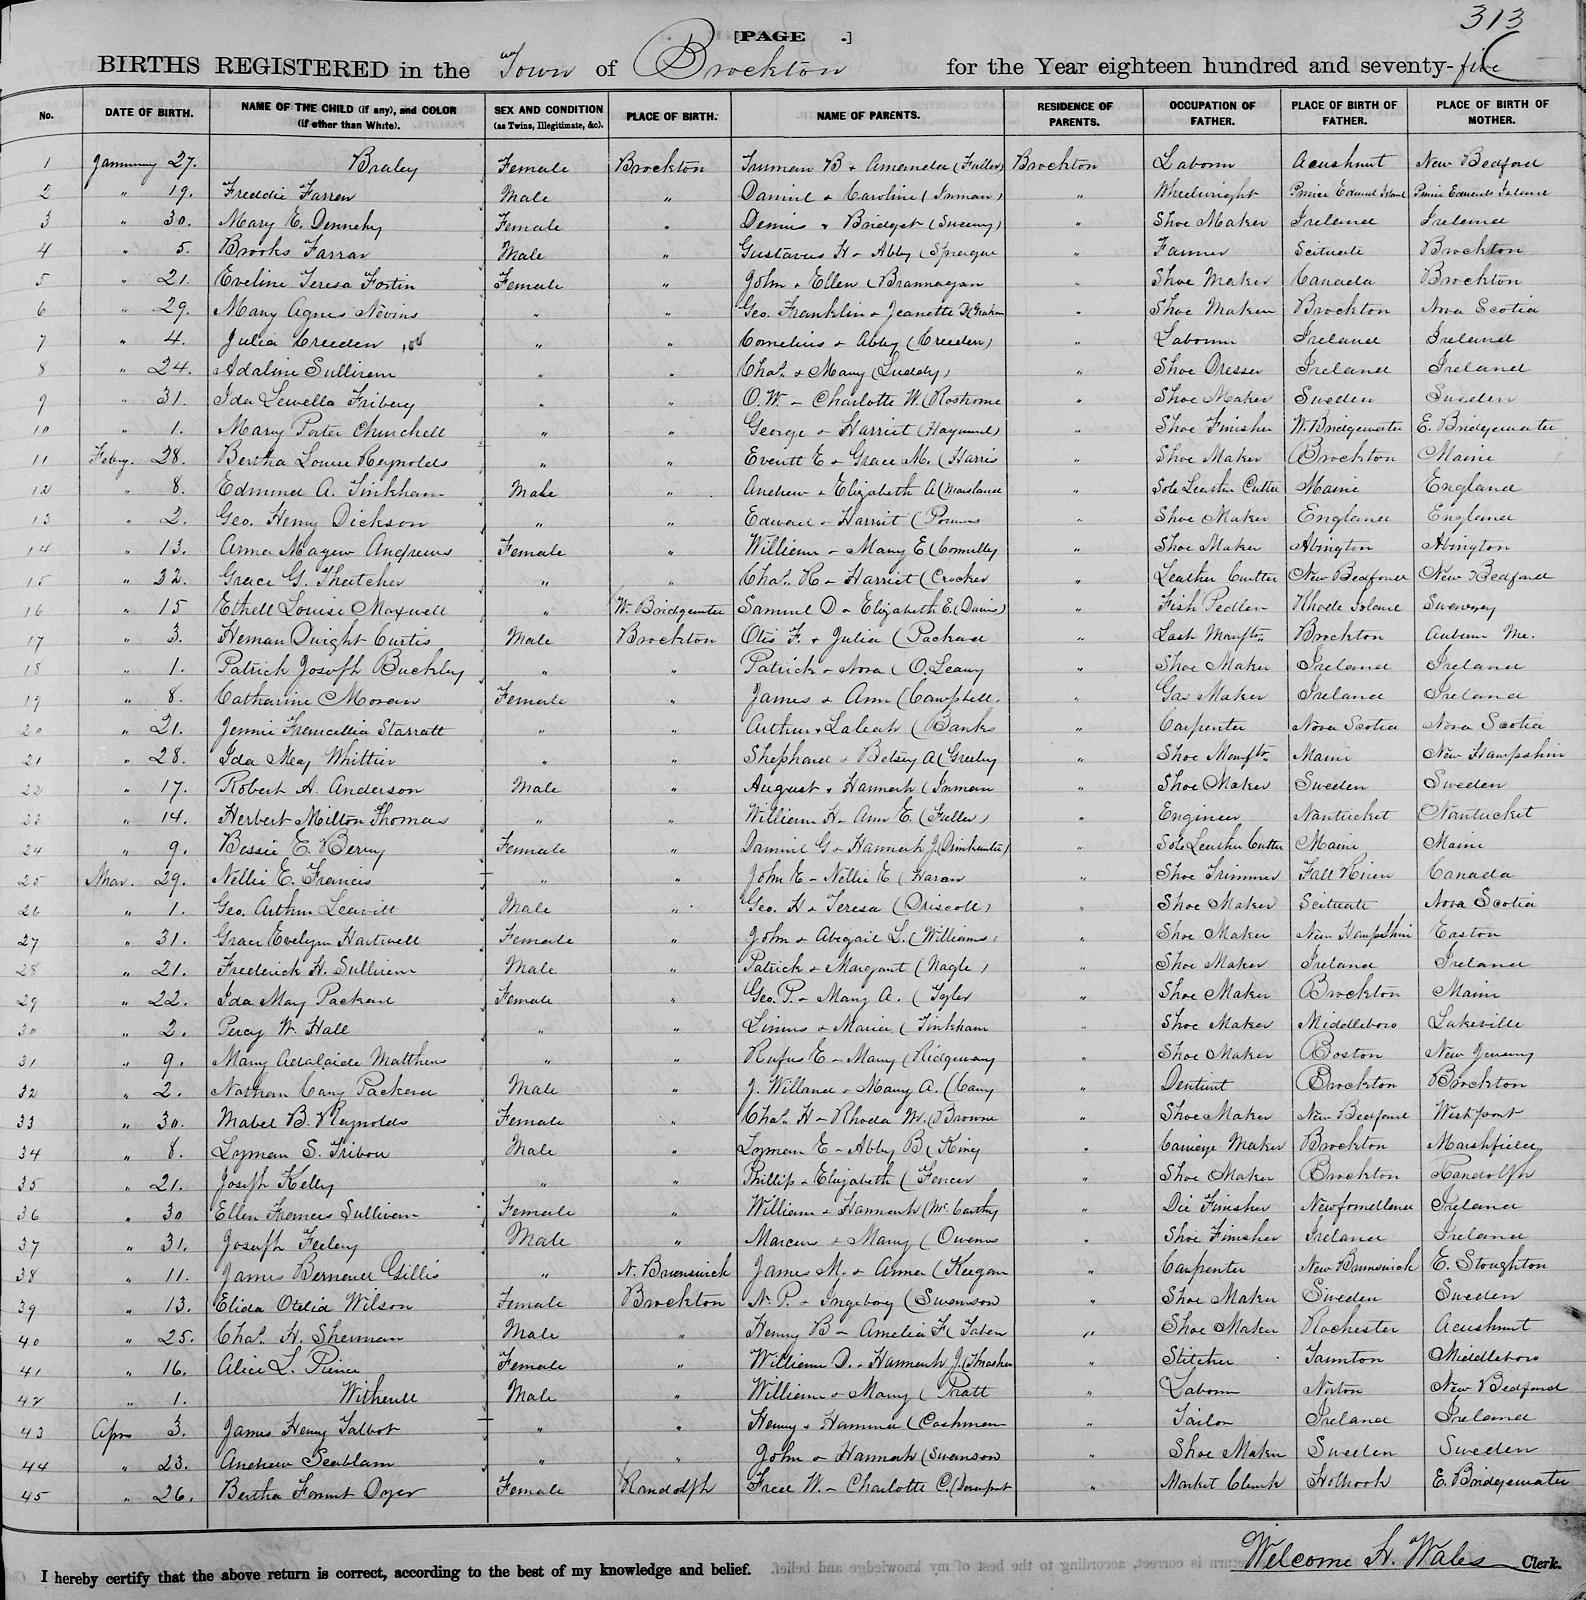 313
[PAGE .]
BIRTHS REGISTERED in the Town of Brockton for the Year eighteen hundred and seventy-five
No. DATE OF BIRTH. NAME OF THE CHILD (if any), and COLOR (if other than White). SEX AND CONDITION (as Twins, Illegitimate, &c). PLACE OF BIRTH. NAME OF PARENTS. RESIDENCE OF PARENTS. OCCUPATION OF FATHER. PLACE OF BIRTH OF FATHER. PLACE OF BIRTH OF MOTHER.
1 January 27. Braley Female Brockton Truman B & Amanda (Fuller) Brockton Laborer Acushnet New Bedford
2 " 19. Freddie Farren Male " Daniel & Caroline (Inman) " Wheelwright Prince Edward Island Prince Edwards Island
3 " 30. Mary E. Dennehy Female " Dennis & Bridget (Sweeny) " Shoe Maker Ireland Ireland
4 " 5. Brooks Farrar Male " Gustavus H & Abby (Sprague " Farmer Scituate Brockton
5 " 21. Eveline Teresa Fortin Female " John & Ellen (Brannagan " Shoe Maker Canada Brockton
6 " 29. Mary Agnes Nevins " " Geo. Franklin & Jeanette D (Graham " Shoe Maker Brockton Nova Scotia
7 " 4. Julia Creeden " " Cornelius & Abby (Creeden) " Laborer Ireland Ireland
8 " 24. Adaline Sullivan " " Chas. & Mary (Luddy) " Shoe Dresser Ireland Ireland
9 " 31. Ida Lewella Friberg " " O. W. & Charlotte W. (Rostrome " Shoe Maker Sweden Sweden
10 " 1. Mary Porter Churchell " " George & Harriet (Hayward) " Shoe Finisher W. Bridgewater E. Bridgewater
11 Feby. 28. Bertha Louise Reynolds " " Everitt E & Grace M. (Harris " Shoe Maker Brockton Maine
12 " 8. Edmund A. Tinkham Male " Andrew & Elizabeth A (Marsland " Sole Leather Cutter Maine England
13 " 2. Geo. Henry Dickson " " Edward & Harriet (Powers " Shoe Maker England England
14 " 13. Anna Mayew Andrews Female " William & Mary E (Connelly " Shoe Maker Abington Abington
15 " 22. Grace G. Thatcher " " Chas. R & Harriet (Crocker " Leather Cutter New Bedford New Bedford
16 " 15 Ethell Louise Maxwell " W. Bridgewater Samuel D & Elizabeth E. (Davis) " Fish Pedler Rhode Island Swanzey
17 " 3. Heman Dwight Curtis Male Brockton Otis F. & Julia (Packard " Last Manftr. Brockton Auburn Me.
18 " 1. Patrick Joseph Buckley " " Patrick & Nora (O. Leary " Shoe Maker Ireland Ireland
19 " 8. Catharine Moran Female " James & Ann (Campbell. " Gas Maker Ireland Ireland
20 " 21. Jennie Francellia Starratt " " Arthur & Laleah (Banks " Carpenter Nova Scotia Nova Scotia
21 " 28. Ida May Whittier " " Shephard & Betsey A (Greeley " Shoe Manftr. Maine New Hampshire
22 " 17. Robert A. Anderson Male " August & Hannah (Inman " Shoe Maker Sweden Sweden
23 " 14. Herbert Milton Thomas " " William H & Ann E. (Fuller) " Engineer Nantucket Nantucket
24 " 9. Bessie E. Berry Female " Daniel G & Hannah J. (Drinkwater) " Sole Leather Cutter Maine Maine
25 Mar. 29. Nellie E. Francis " " John E & Nellie E (Haran " Shoe Trimmer Fall River Canada
26 " 1. Geo. Arthur Leavitt Male " Geo. H & Teresa (Driscoll) " Shoe Maker Scituate Nova Scotia
27 " 31. Grace Evelyn Hartwell Female " John & Abigail L. (Williams) " Shoe Maker New Hampshire Easton
28 " 21. Frederick H. Sullivan Male " Patrick & Margaret (Nagle) " Shoe Maker Ireland Ireland
29 " 22. Ida May Packard Female " Geo. P. & Mary A. (Tyler " Shoe Maker Brockton Maine
30 " 2. Percy W. Hall " " Linus & Maria (Tinkham " Shoe Maker Middleboro Lakeville
31 " 9. Mary Adalaide Matthews " " Rufus E & Mary (Ridgeway " Shoe Maker Boston New Jersey
32 " 2. Nathan Cary Packard Male " J. Willard & Mary A. (Cary " Dentist Brockton Brockton
33 " 30. Mabel B. Reynolds Female " Chas. H & Rhoda M. (Browne " Shoe Maker New Bedford Westport
34 " 8. Lyman S. Tribou Male " Lyman E & Abby B (King " Carriage Maker Brockton Marshfield
35 " 21. Joseph Kelley " " Phillip & Elizabeth (Fencer " Shoe Maker Brockton Randolph
36 " 30 Ellen Frances Sullivan Female " William & Hannah (McCarthy " Die Finisher Newfoundland Ireland
37 " 31. Joseph Feeley Male " Marcus & Mary (Owens " Shoe Finisher Ireland Ireland
38 " 11. James Bernard Gillis " N. Brunswick James M. & Anna (Keegan " Carpenter New Brunswick E. Stoughton
39 " 13. Elida Otelia Wilson Female Brockton N. P. & Ingeborg (Swanson " Shoe Maker Sweden Sweden
40 " 25. Chas. H. Sherman Male " Henry B & Amelia F (Taber " Shoe Maker Rochester Acushnet
41 " 16. Alice L. Pierce Female " William D. & Hannah J. (Thrasher " Stitcher Taunton Middleboro
42 " 1. Witherell Male " William & Mary (Pratt " Laborer Norton New Bedford
43 Apr 3. James Henry Talbot " " Henry & Hanna (Cashman " Tailor Ireland Ireland
44 " 23. Andrew Seablam " " John & Hannah (Swanson " Shoe Maker Sweden Sweden
45 " 26. Bertha Forrest Dyer Female Randolph Fred W. & Charlotte C. (Davenport " Market Clerk Holbrook E. Bridgewater
I hereby certify that the above return is correct, according to the best of my knowledge and belief. Welcome H. Wales Clerk.